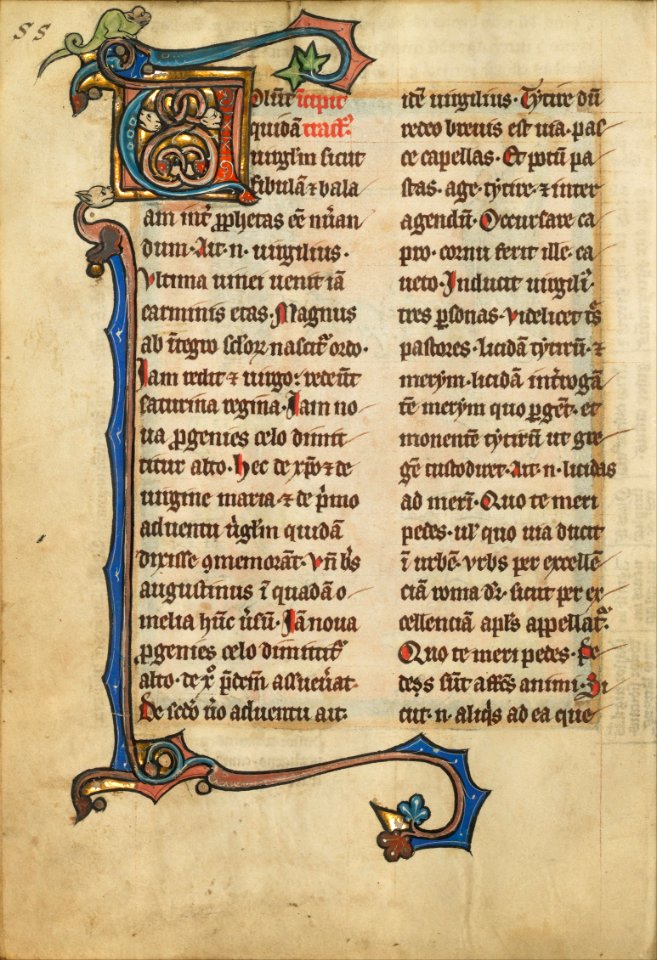 SS
Volūt īcipit
quidā tract᷒
uirgłm sicut
sibulā ⁊ bala
am int̄ ꝓphetas eē nūan
dum · Ait · n · uirgilius ·
Vltima uinei uenit iā
carminis etas · Magnus
ab īteg̃o sc̄loꝝ nascit᷒ ordo ·
Iam redit ⁊ uirgo : redeūt
saturina regina · Iam no
ua ꝓgenies celo dimit
titur alto · hec de xp̄o ⁊ de
uirgine maria · ⁊ de p̄mo
aduentu ũgłm quidā
dixisse ꝯmemorāt · Vñ b̄s
augustinus ī quadā o
melia hūc ũsū · Iā noua
ꝓgenies celo dimitit᷒
alto · de xō p̄dēm asseũat ·
De sc̄do ũo aduentu ait ·
itē uirgilius · Tytire dū
redeo breuis est uia · pas
ce capellas · Et potū pa
stas · age · tytire · ⁊ inter
agendū · Occursare ca
pro · cornu ferit ille · ca
ueto · Inducit uirgili᷒ ·
tres ꝑsonas · Videlicet t̃s
pastores · licidā tytirū · ⁊
merym · licidā int̃rogā
tē merym quo ꝑgēt · et
monentē tytirū ut gre
gē custodiret · Ait · n · licidas
ad merī · Quo te meri
pedes · uł quo uia ducit
ī urbē · Vrbs per excellē
ciā roma dr̄ · sicut per ex
cellenciā apłs appellat᷒ ·
Quo te meri pedes · Pe
des sūt affc̄s animi · Si
cut · n · aliq̄s ad ea que